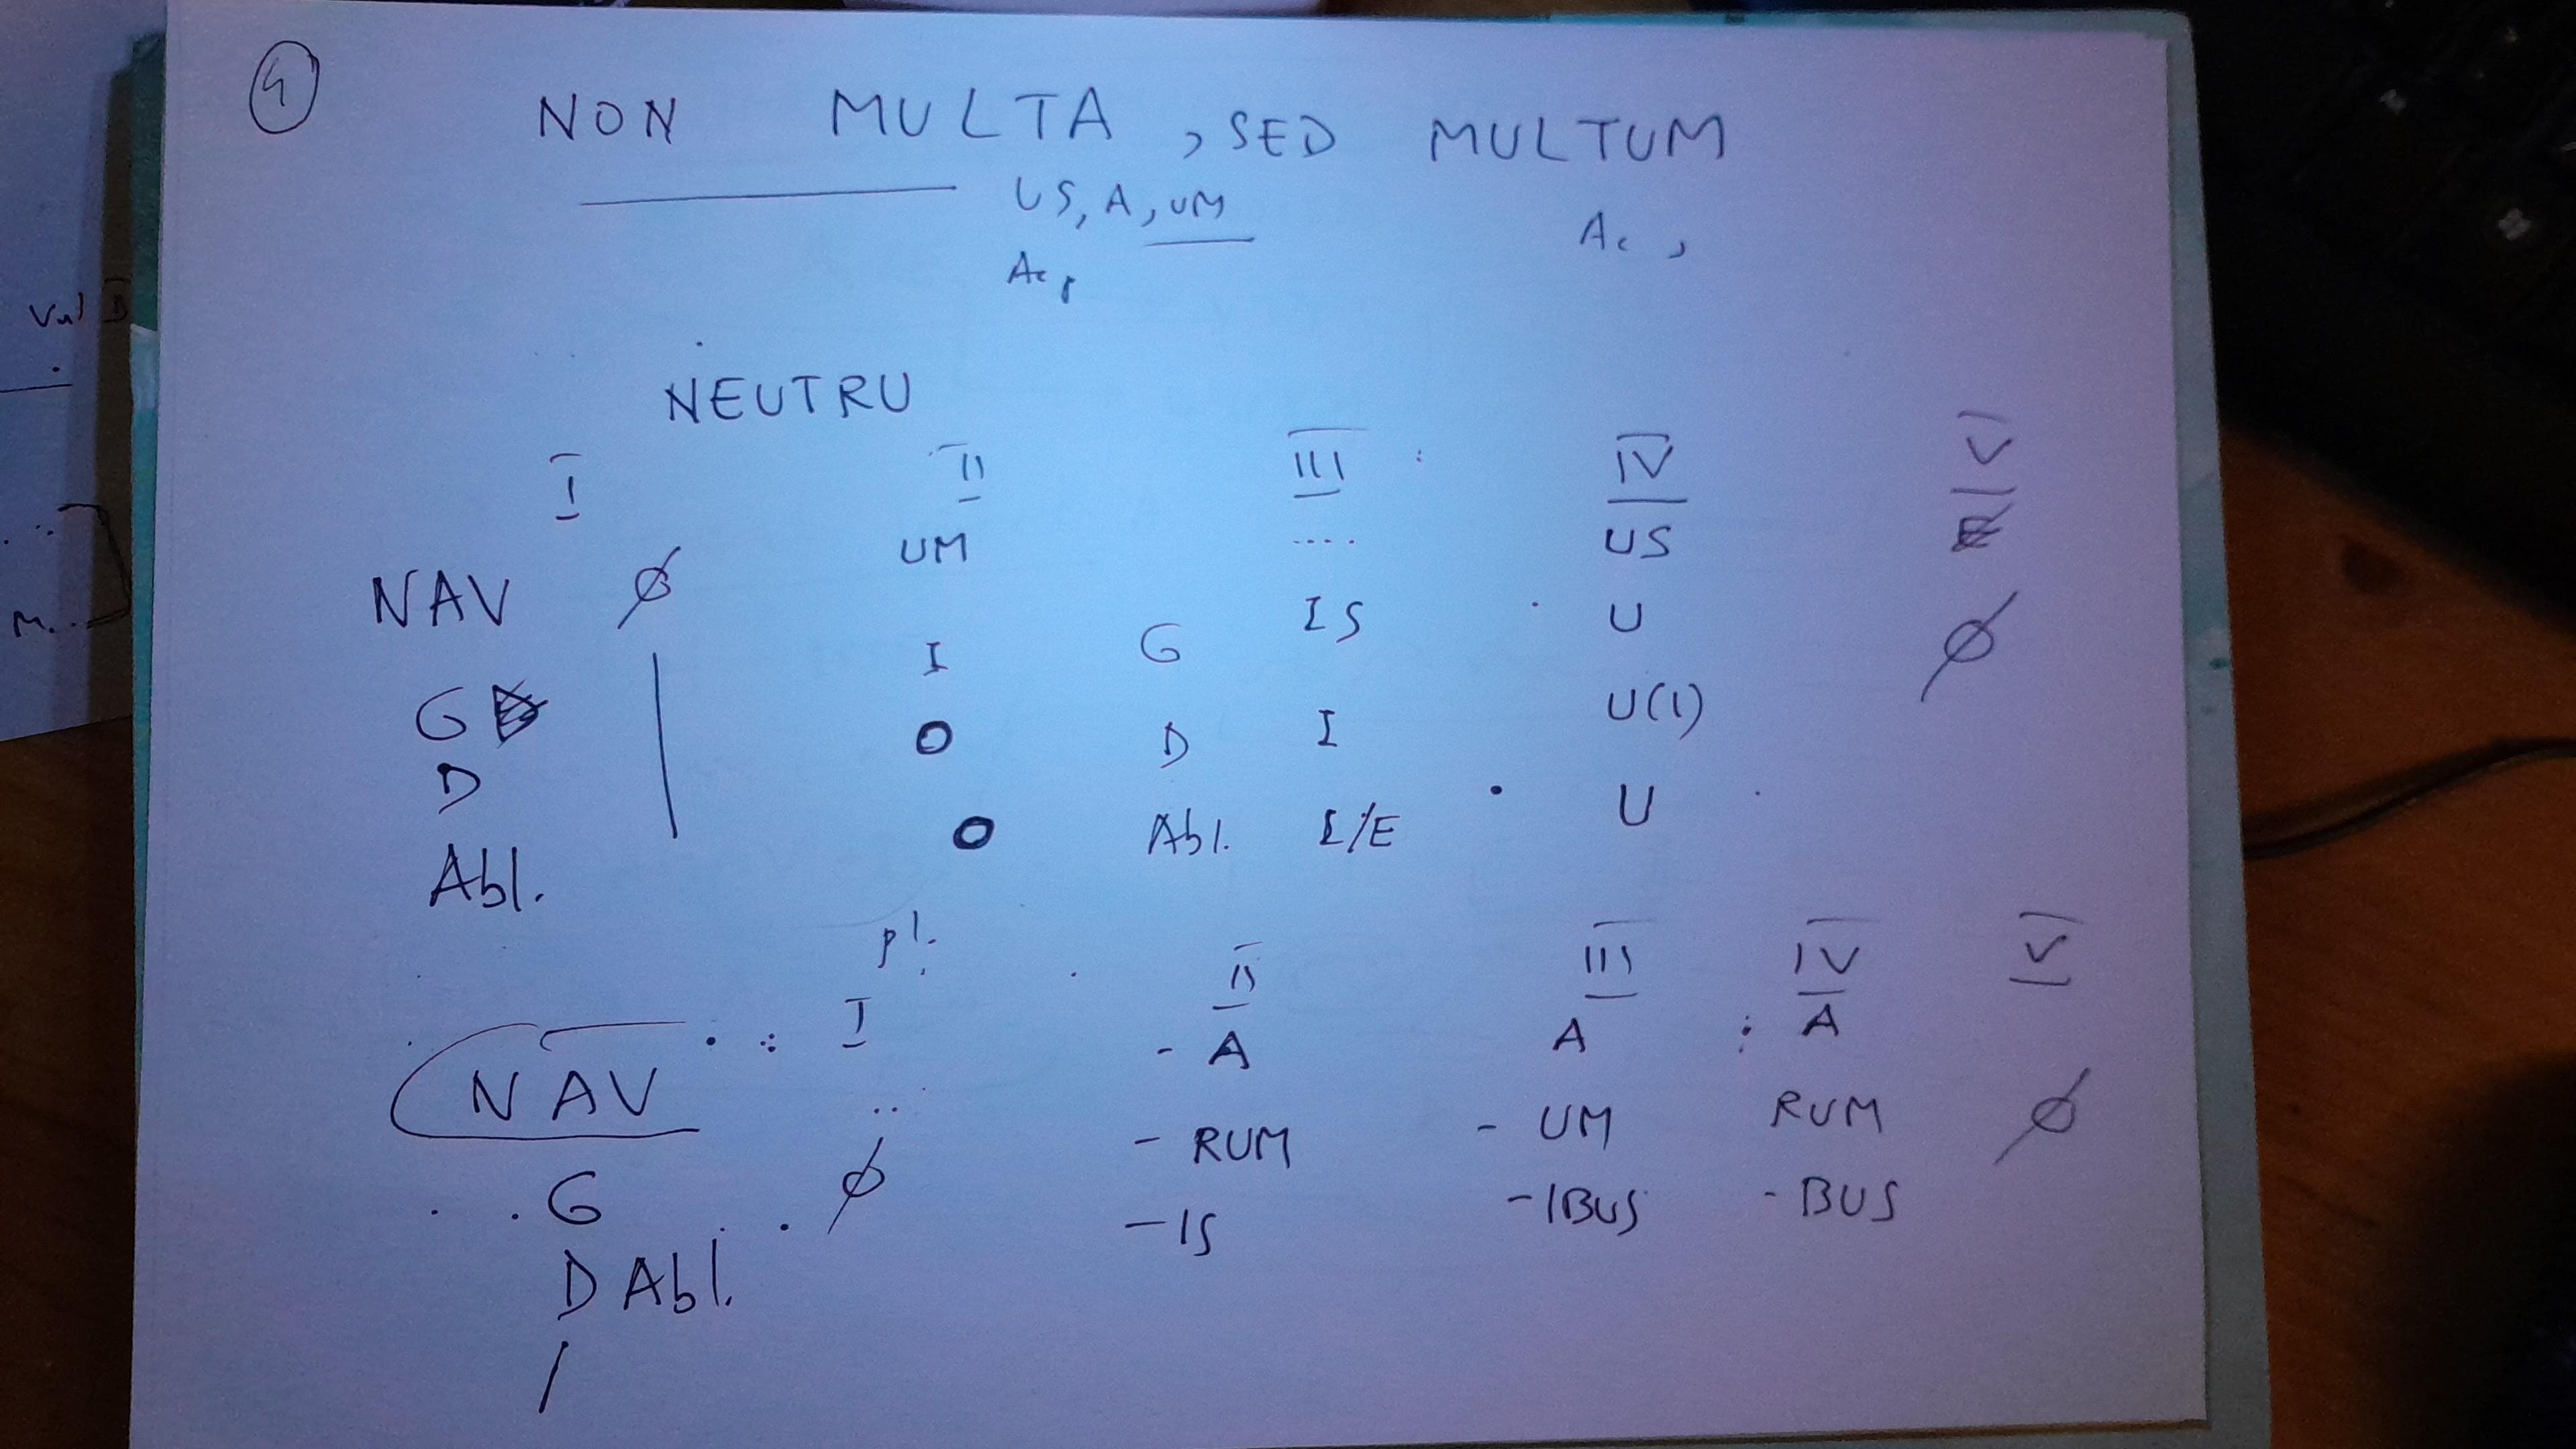 4
NON MULTA, SED MULTUM
US, A, UM
Ac,
Ac,
NEUTRU
I II III IV V
NAV ∅ UM .... US
G I G IS U ∅
D O D I U(I)
Abl. O Abl. I/E U
pl.
I II III IV V
NAV - A A A
G ∅ - RUM - UM RUM ∅
D Abl. - IS - IBUS - BUS